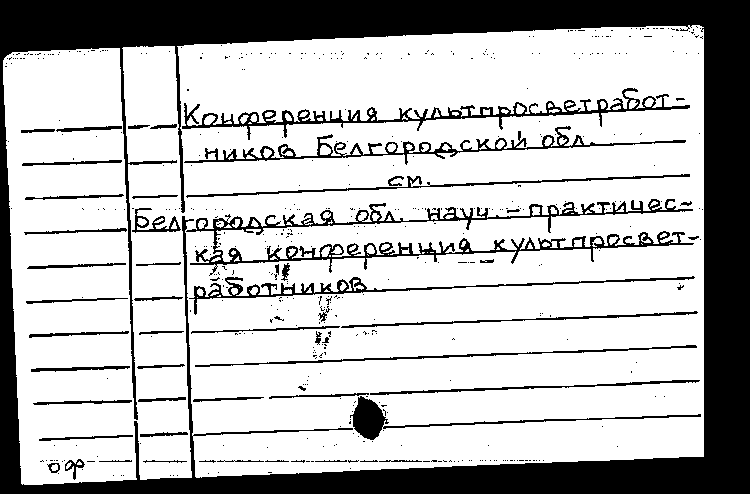 Конференция культпросветработ-
ников Белгородской обл.
см.
Белгородская обл. науч.-практичес-
кая конференция культпросвет-
работников.
оф